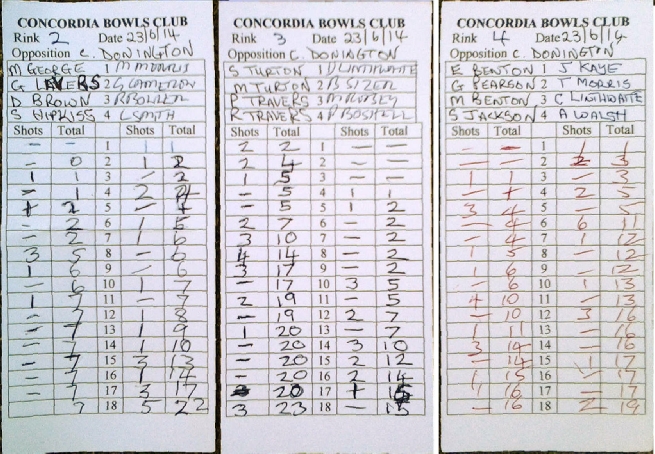 CONCORDIA BOWLS CLUB
Rink 2 Date 23/6/14
Opposition C. DONINGTON
M GEORGE 1 M MORRIS
G LAVERS 2 G CAMERON
D BROWN 3
S HIPKISS 4 L SMITH
Shots Total Shots Total
– – 1 1 1
– 0 2 1 2
1 1 3 – 2
– 1 4 2 4
1 2 5 – 4
– 2 6 1 5
– 2 7 1 6
3 5 8 – 6
1 6 9 – 6
– 6 10 1 7
1 7 11 – 7
– 7 12 1 8
– 7 13 1 9
– 7 14 1 10
– 7 15 3 13
– 7 16 1 14
– 7 17 3 17
7 18 5 22
CONCORDIA BOWLS CLUB
Rink 3 Date 23/6/14
Opposition C. DONINGTON
S TURTON 1 D LINTHWAITE
M TURTON 2 B SIZER
P TRAVERS 3
K TRAVERS 4 P BOSHELL
Shots Total Shots Total
2 2 1 – –
2 4 2 – –
1 5 3 – –
– 5 4 1 1
– 5 5 1 2
2 7 6 – 2
3 10 7 – 2
4 14 8 – 2
3 17 9 – 2
– 17 10 3 5
2 19 11 – 5
– 19 12 2 7
1 20 13 – 7
– 20 14 3 10
– 20 15 2 12
– 20 16 2 14
20 17 1 15
3 23 18 – 15
CONCORDIA BOWLS CLUB
Rink 4 Date 23/6/14
Opposition C. DONINGTON
E BENTON 1 J KAYE
G PEARSON 2 T MORRIS
M BENTON 3 C LINTHWAITE
S JACKSON 4 A WALSH
Shots Total Shots Total
– – 1 1 1
– – 2 2 3
1 1 3 – 3
– 1 4 2 5
3 4 5 – 5
– 4 6 6 11
– 4 7 1 12
1 5 8 – 12
1 6 9 – 12
– 6 10 1 13
4 10 11 – 13
– 10 12 3 16
1 11 13 – 16
3 14 14 – 16
– 14 15 1 17
1 15 16 – 17
1 16 17 – 17
– 16 18 2 19